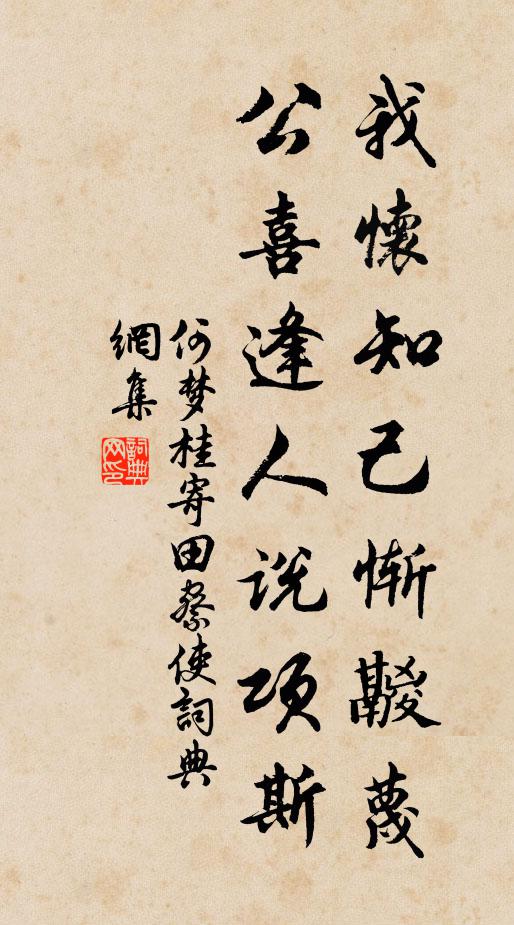 我懷知己惭鬷蔑
公喜逢人说项斯
何梦桂寄田察使詞典
網集
詞典网印